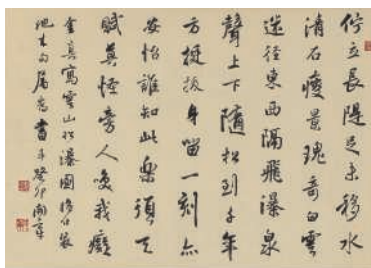 佇立長堤足未移水
清石瘦景瑰奇白雲
送徑東西隔飛瀑泉
聲上下隨松到千年
方挺拔身留一刻亦
安怡誰知此樂須天
賦莫怪旁人喚我癡
金真寫雲山松瀑圖
地支句屬為書